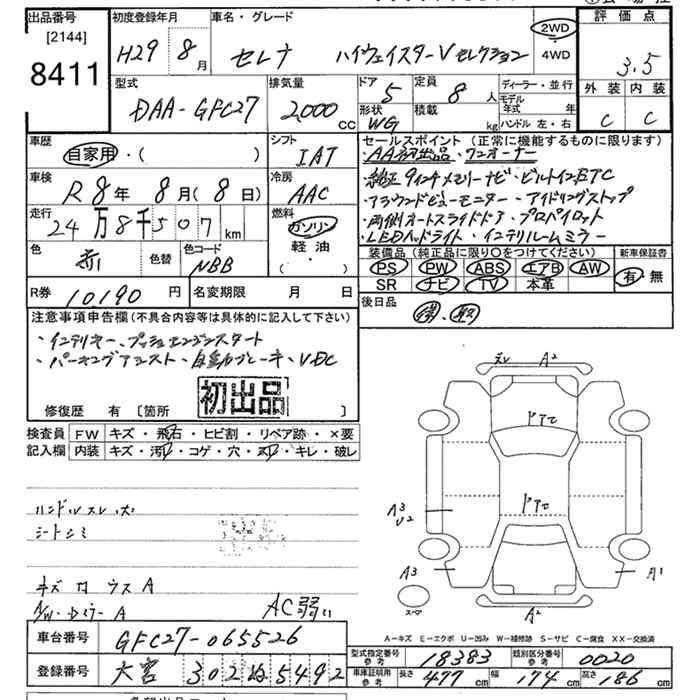 出品番号
[2144]
8411
初度登録年月
H29 8月
車名・グレード
セレナ ハイウェイスターV セレクション
2WD
4WD
評価点
3.5
外装 内装
C C
型式
DAA-GFC27
排気量
2,000 CC
ドア 5
形状 WG
定員 8 人
積載 kg
ディーラー・並行
モデル年式 年
ハンドル 左・右
車歴
自家用・( )
シフト
IAT
車検
R8年 8月(8日)
冷房
AAC
走行
24万8千507 km
燃料
ガソリン
軽油・
( )
色
赤
色替
色コード
NBB
セールスポイント (正常に機能するものに限ります)
・AA初出品・ワンオーナー
・純正9インチメモリーナビ・ビルトインETC
・アラウンドビューモニター・アイドリングストップ
・両側オートスライドドア・プロパイロット
・LEDヘッドライト・インテリルームミラー
装備品 (純正品に限り〇をつけてください)
PS PW ABS エアB AW
SR ナビ TV 本革
新車保証書
有・無
R券 10190 円
名変期限 月 日
後日品
注意事項申告欄 (不具合内容等は具体的に記入して下さい)
・インテリキー・プッシュエンジンスタート
・パーキングアシスト・自動ブレーキ・VDC
初出品
修復歴 有 [箇所 ]
検査員
記入欄
FW キズ・飛石・ヒビ割・リペア跡・×要
内装 キズ・汚れ・コゲ・穴・スレ・キレ・破レ
ハンドルスレ
シートシミ
キズ
AC弱い
A²
ドアミ
A³
U²
A³
A¹
A²
A-キズ E-エクボ U-凹み W-補修跡 S-サビ C-腐食 XX-交換済
車台番号 GFC27-065526
登録番号 大宮 302 5492
型式指定番号 参考 18383
類別区分番号 参考 0020
車庫証明用 参考 長さ 477 cm 幅 174 cm 高さ 186 cm